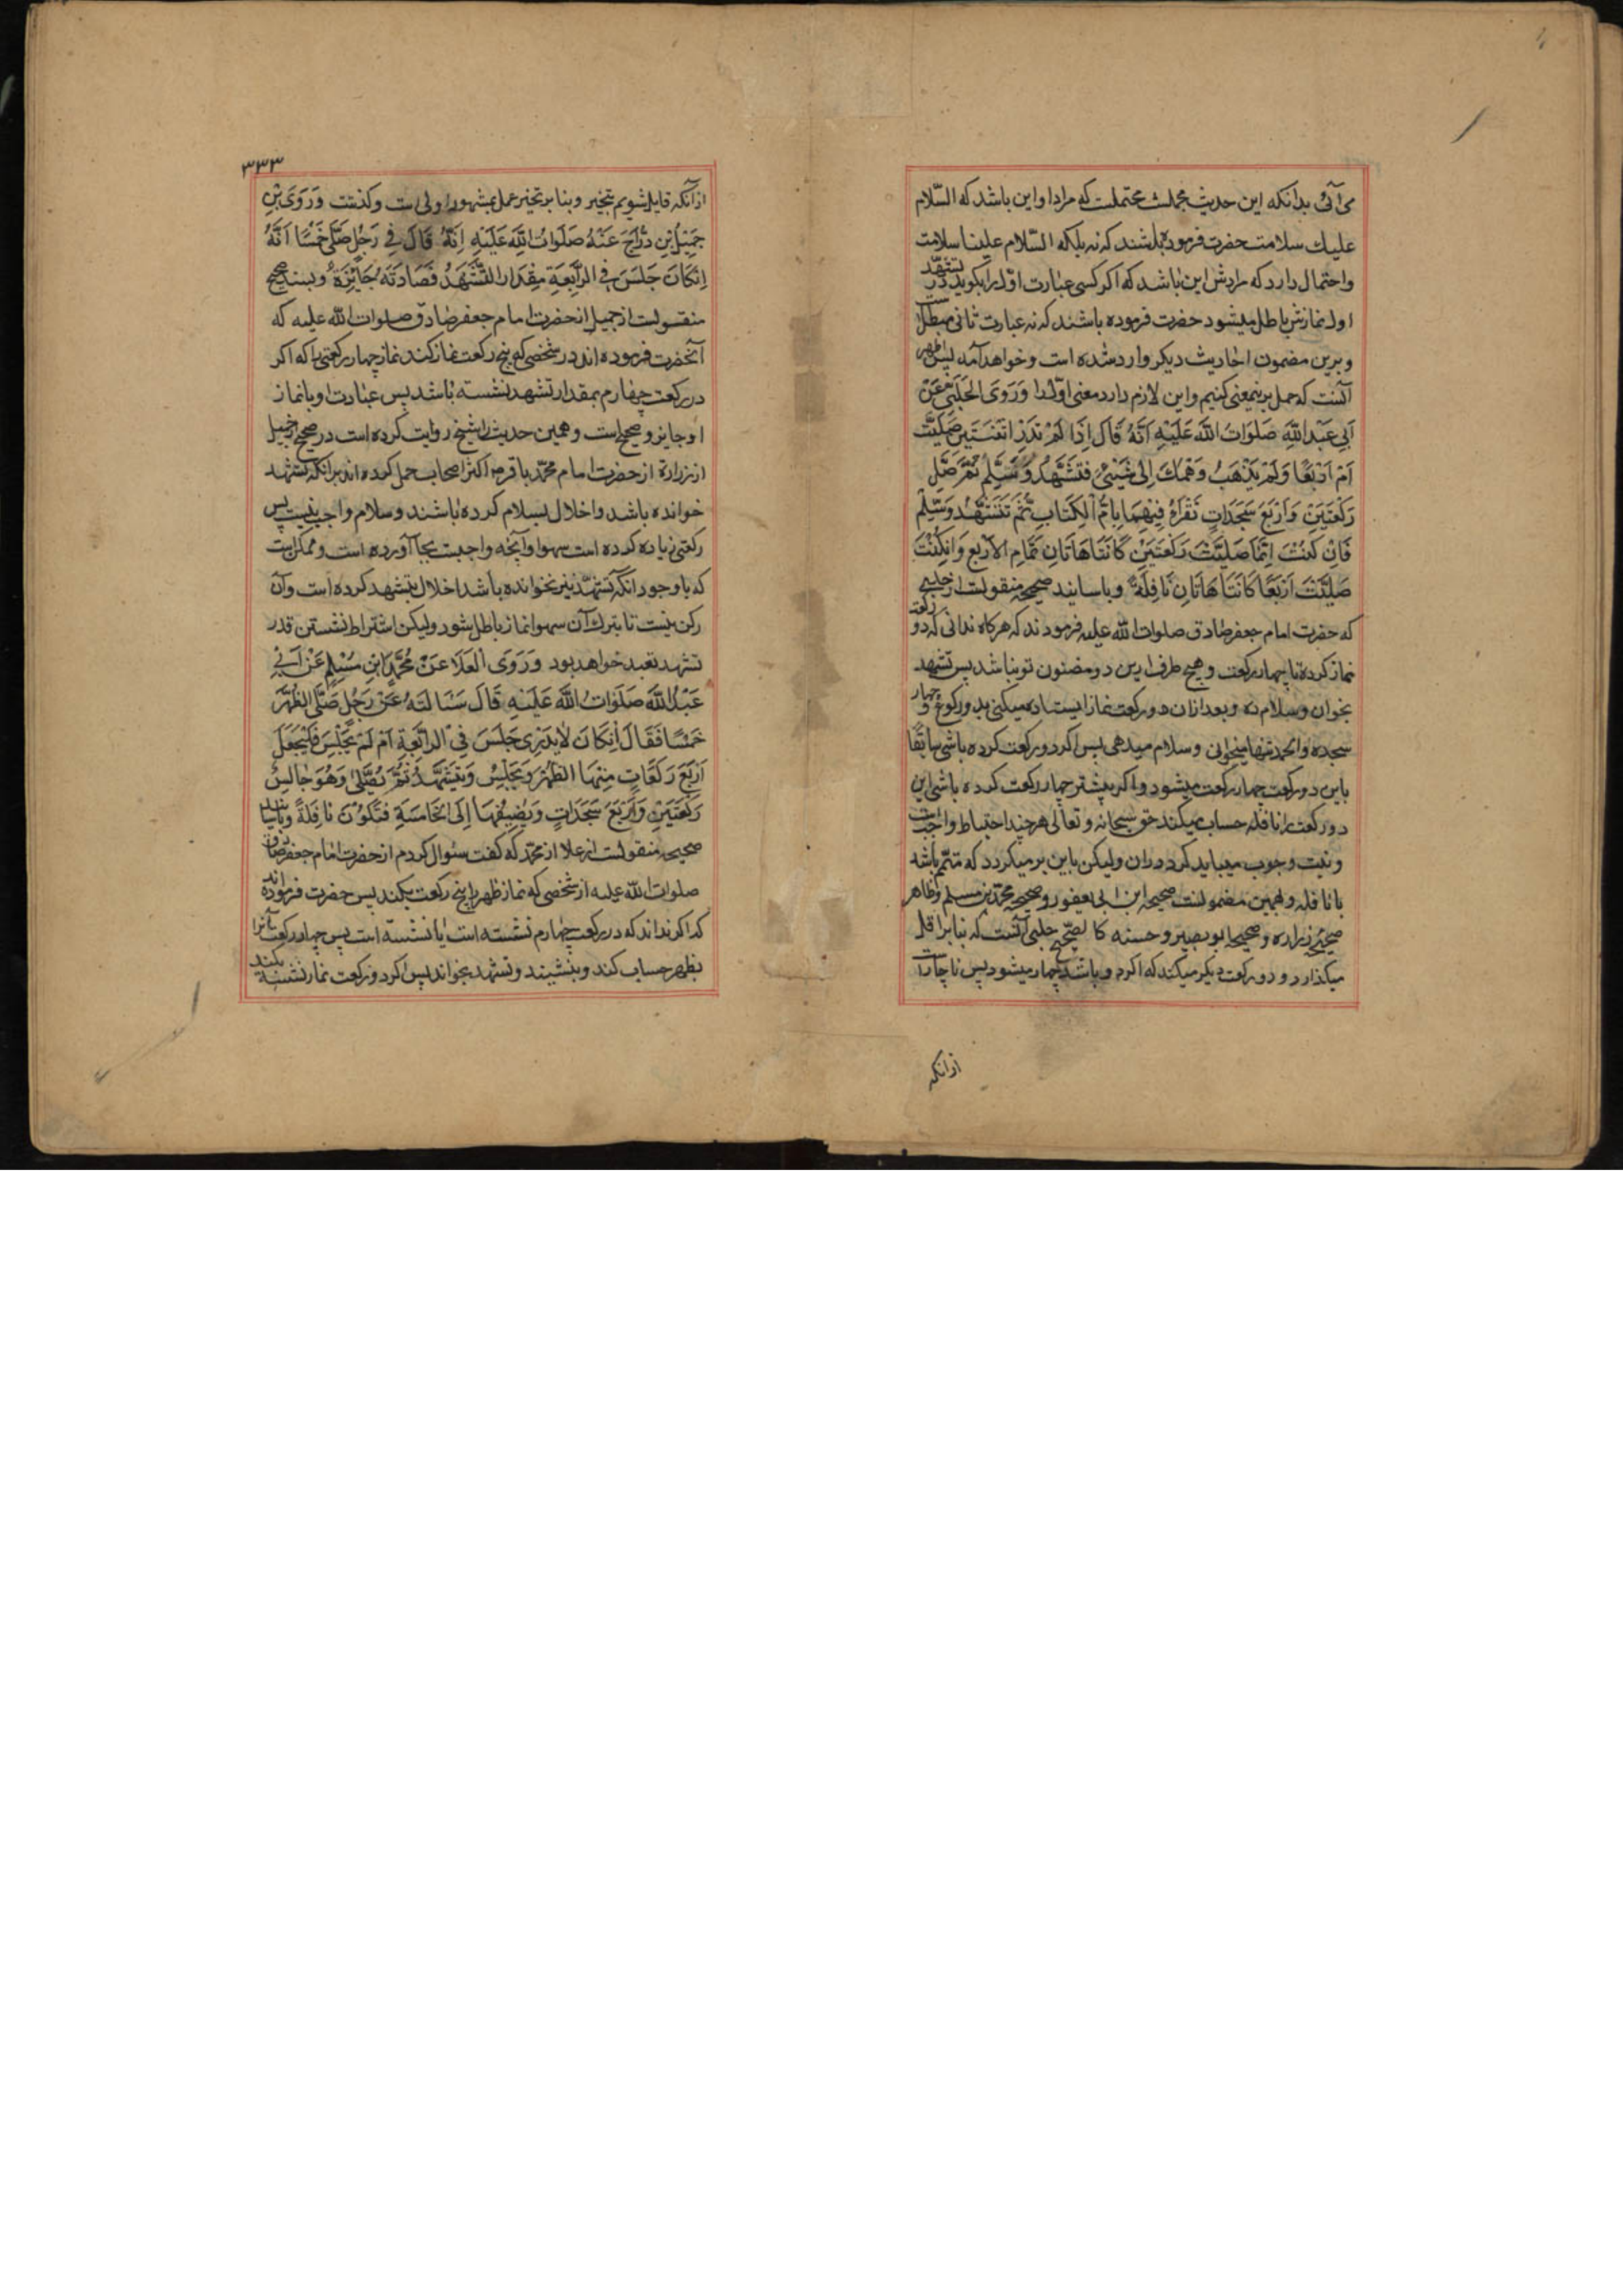 می آئی بدانکه این حدیث مجملست محتملست که مراد او این باشد که السّلام
علیك سلامت حضرت فرموده باشند که نه بلکه السّلام علینا سلامت
واحتمال دارد که مرادش این باشد که اکر کسی عبارت اوّل را بکوید در تشهّد
اول نمازش باطل میشود حضرت فرموده باشند که نه عبارت ثانی مبطل است
وبرین مضمون احادیث دیکر وارد شده است وخواهد آمد پس اظهر
آنست که حمل برینمعنی کنیم واین لازم دارد معنی اوّل را وَرَوَی الحَلَبّی عَنْ
اَبی عَبْدِاللّهِ صَلَوَاتُ اللّهِ عَلَیْهِ اَنَّهُ قَالَ اِذَا لَمْ تَدْرِ اثْنَتَیْنِ صَلَّیْتَ
اَمْ اَرْبَعًا وَلَمْ یَذْهَبْ وَهْمُكَ اِلی شَیْئٍ فَتَشَهَّدْ وَسَلِّمْ ثُمَّ صَلِّ
رَکْعَتَیْنِ وَاَرْبَعَ سَجَدَاتٍ تَقْرَاءُ فِیْهِمَا بِاُمِّ الْکِتَابِ ثُمَّ تَتَشَهَّدُ وَسَلِّمْ
فَاِنْ کُنْتَ اِنَّمَا صَلَّیْتَ رَکْعَتَیْنِ کَانَتَا هَاتَانِ تَمَامَ الاَرْبَعِ وَاِنْ کُنْتَ
صَلَّیْتَ اَرْبَعًا کَانَتَا هَاتَانِ نَافِلَةً وباسانید صحیحه منقولست از حلبی
که حضرت امام جعفر صادق صلوات الله علیه فرمودند که هرکاه ندانی که دو رکعت
نماز کرده یا چهار رکعت وهیچ طرف ازین دو مضنون تو نباشد پس تشهد
بخوان وسلام ده وبعد ازان دو رکعت نماز ایستاده میکنی بدو رکوع و چهار
سجده والحمد تنها میخوانی وسلام میدهی پس اکر دو رکعت کرده باشی سابقًا
باین دو رکعت چهار رکعت میشود واکر پیشتر چهار رکعت کرده باشی این
دو رکعت را نافله حساب میکند حق سبحانه وتعالی هر چند احتیاط واجبست
ونیت وجوب میباید کرد دران ولیکن باین بر میکردد که متمّم باشد
یا نافله وبهمین مضمونست صحیحه ابن ابی یعفور وصحیحه محمّد بن مسلم وظاهر
صحیحهٔ زراره وصحیحه ابو بصیر وحسنه کالصّحیح حلبی آنست که بنا بر اقل
میکذارد ودو رکعت دیکر میکند که اکر دو باشد چهار میشود پس ناچار است
ازانکه
۳۳۳
ازآنکه قایل شویم بتخیر وبنا بر تخیر عمل بمشهور اولی است وکذشت وَرَوَی
جَمِیْلُ بْنِ دُرَّاجَ عَنْهُ صَلَوَاتُ اللّهِ عَلَیْهِ اَنَّهُ قَالَ فی رَجُلٍ صَلَّی خَمْسًا اَنَّهُ
اِنْکَانَ جَلَسَ فی الرَّابِعَةِ مِقْدَارَ التَّشَهُّدِ فَصَلَوتُهُ جَایِزَةٌ وبسند صحیح
منقولست از جمیل از حضرت امام جعفر صادق صلوات الله علیه که
آنحضرت فرموده اند در شخصی که پنج رکعت نماز کند نماز چهار رکعتی را که اکر
در رکعت چهارم بمقدار تشهد نشسته باشد پس عبادت او یا نماز
او جایز وصحیح است وهمین حدیث را شیخ روایت کرده است در صحیح از جمیل
از زراره از حضرت امام محمّد باقر واکثر اصحاب حمل کرده اند برانکه تشهد
خوانده باشد واخلال بسلام کرده باشند وسلام واجب نیست پس
رکعتی زیاده کرده است سهوا وآنچه واجبست بجا آورده است وممکن است
که با وجود انکه تشهّد نیز نخوانده باشد اخلال بتشهد کرده است وآن
رکن نیست تا بترك آن سهوا نماز باطل شود ولیکن اشتراط نشستن قدر
تشهد تعبد خواهد بود وَرَوَی الْعَلَا عَنْ مُحَمَّدِ ابْنِ مُسْلِمٍ عَنْ اَبی
عَبْدُاللّهَ صَلَوَاتُ اللّهَ عَلَیْهِ قَالَ سَئَالْتَهُ عَنْ رَجُلٍ صَلَّی الظُّهْرَ
خَمْسًا فَقَالَ اِنْکَانَ لاَیَدْرِی جَلَسَ فی الرَّابِعَةِ اَمْ لَمْ یَجْلِسْ فَلْیَجْعَلْ
اَرْبَعَ رَکَعَاتٍ مِنْهَا الظُّهْرَ وَیَجْلِسْ وَیَتَشَهَّدُ ثُمَّ یُصَلّی وَهُوَ جَالِسٌ
رَکْعَتَیْنِ وَاَرْبَعَ سَجَدَاتٍ وَیُضِیْفُهَا اِلَی الْخَامِسَةِ فَتَکُوْنُ نَافِلَةً وباسانید
صحیحه منقولست از علا از محمّد که کفت سئوال کردم از حضرت امام جعفر صادق
صلوات الله علیه از شخصی که نماز ظهر را پنج رکعت بکند پس حضرت فرموده اند
که اکر نداند که در رکعت چهارم نشسته است یا ننشسته است پس چهار رکعت آنرا
بظهر حساب کند وبنشیند وتشهد بخواند پس اکر دو رکعت نماز نشسته بکند